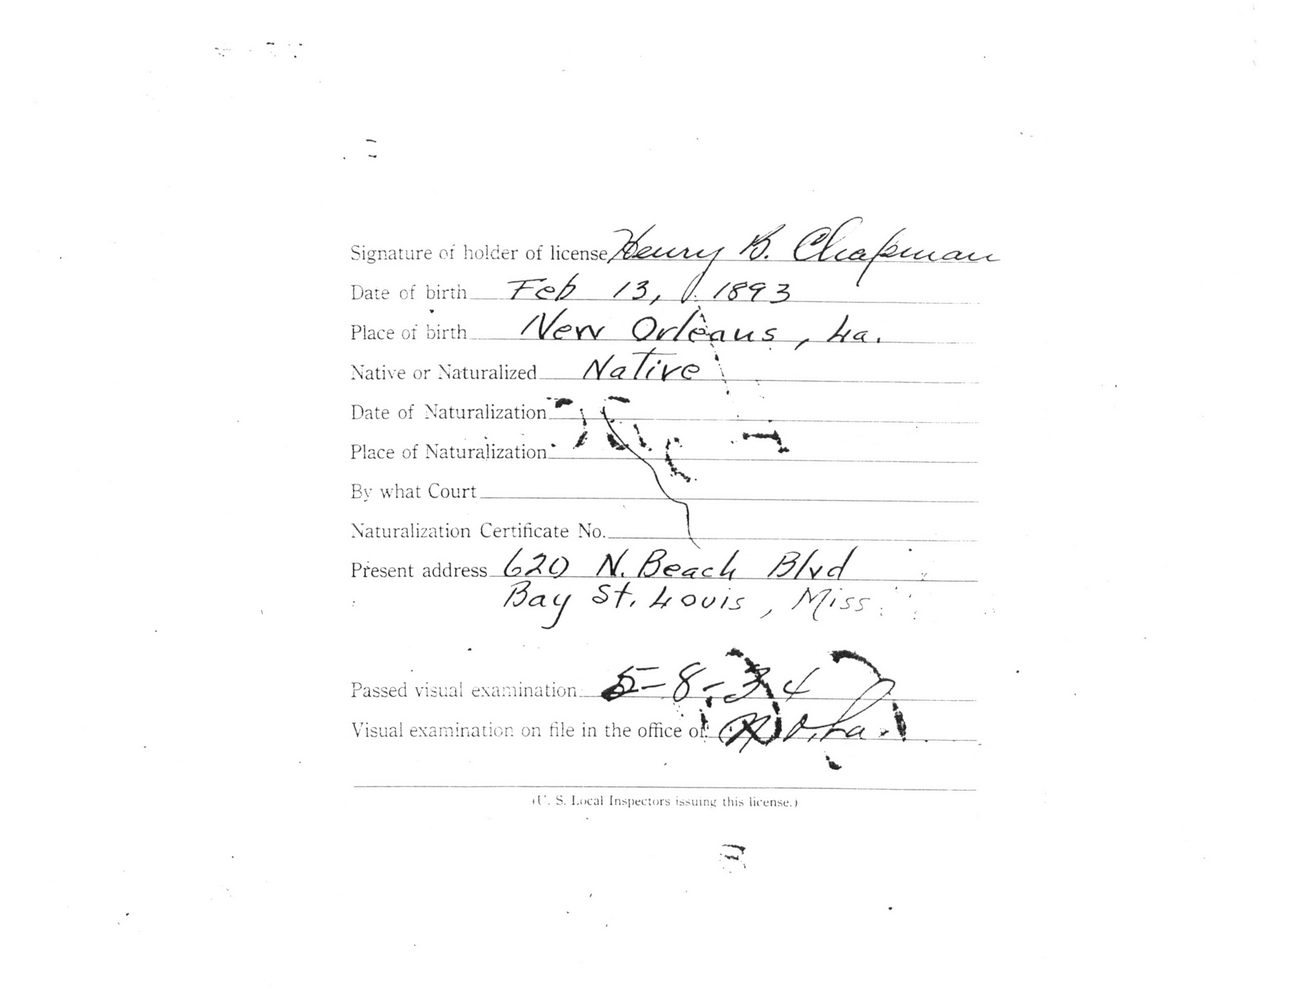 Signature of holder of license Henry B. Chapman
Date of birth Feb 13, 1893
Place of birth New Orleans, La.
Native or Naturalized Native
Date of Naturalization
Place of Naturalization
By what Court
Naturalization Certificate No.
Present address 620 N. Beach Blvd
Bay St. Louis, Miss.
Passed visual examination 5-8-34
Visual examination on file in the office of N.O. La.
(U. S. Local Inspectors issuing this license.)